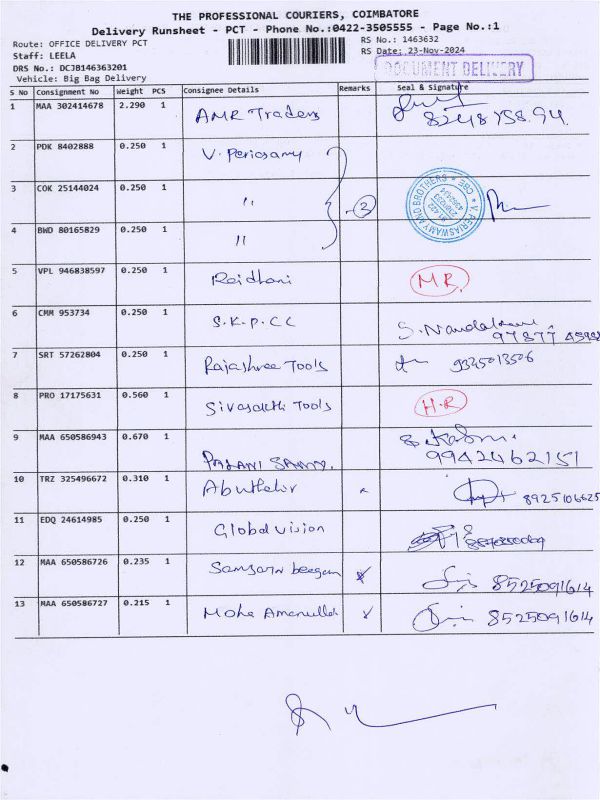 THE PROFESSIONAL COURIERS, COIMBATORE
Delivery Runsheet - PCT - Phone No.:0422-3505555 - Page No.:1
Route: OFFICE DELIVERY PCT
RS No.: 1463632
Staff: LEELA
RS Date: 23-Nov-2024
DRS No.: DCJB146363201
DOCUMENT DELIVERY
Vehicle: Big Bag Delivery
S No Consignment No Weight PCS Consignee Details Remarks Seal & Signature
1 MAA 302414678 2.290 1 AMR Traders
2 PDK 8402888 0.250 1 V. Periasamy
3 COK 25144024 0.250 1 " 3
V. PERIASWAMY AND BROTHERS * CBE *
4 BWD 80165829 0.250 1 "
5 VPL 946838597 0.250 1 Rajdhani M.R.
6 CMM 953734 0.250 1 S.K.P.CC
7 SRT 57262804 0.250 1 Rajashree Tools 9345013506
8 PRO 17175631 0.560 1 Sivasakthi Tools H.R
9 MAA 650586943 0.670 1 PALANI SAMY. 9942462151
10 TRZ 325496672 0.310 1 8925106625
11 EDQ 24614985 0.250 1 Global vision
12 MAA 650586726 0.235 1 8525091614
13 MAA 650586727 0.215 1 8525091614